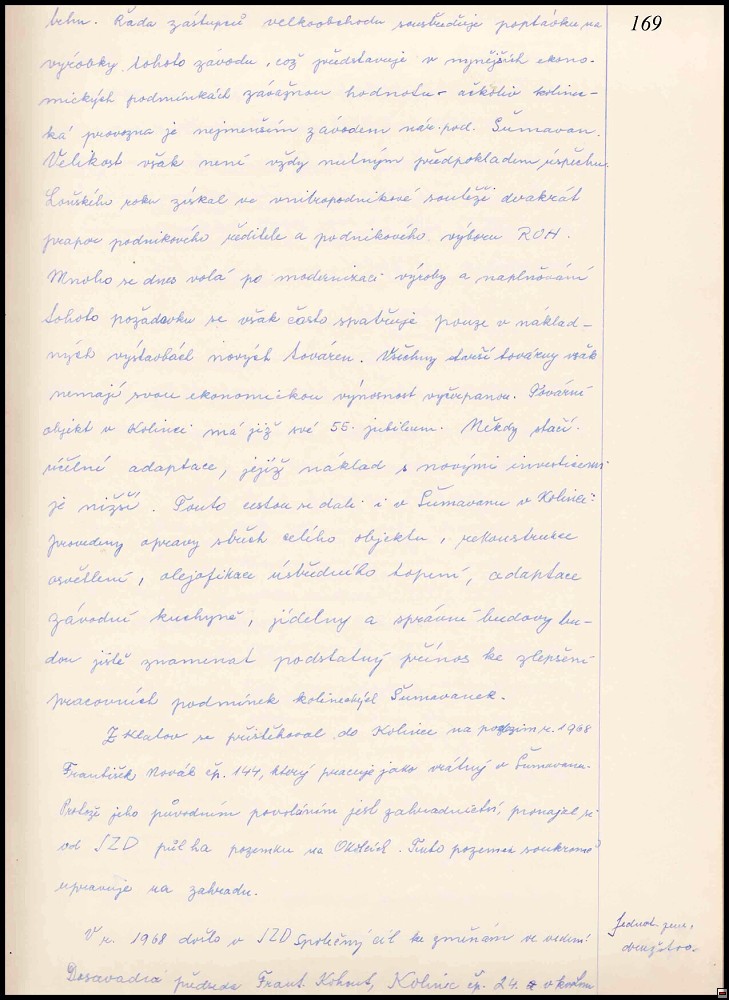 169
trhu. Řada zástupců velkoobchodu soustřeďuje poptávku na
výrobky tohoto závodu, což představuje v nynějších ekono-
mických podmínkách závažnou hodnotu - ačkoliv kolinec-
ká provozna je nejmenším závodem nár. pod. Šumavan.
Velikost však není vždy nutným předpokladem úspěchu.
Loňského roku získal ve vnitropodnikové soutěži dvakrát
prapor podnikového ředitele a podnikového výboru ROH.
Mnoho se dnes volá po modernizaci výroby a naplňování
tohoto požadavku se však často spatřuje pouze v náklad-
ných výstavbách nových továren. Všechny starší továrny však
nemají svou ekonomickou výnosnost vyčerpanou. Tovární
objekt v Kolinci má již své 55. jubileum. Někdy stačí
účelné adaptace, jejíž náklad s novými investicemi
je nižší. Touto cestou se dali i v Šumavanu v Kolinci:
provedeny opravy střech celého objektu, rekonstrukce
osvětlení, olejofikace ústředního topení, adaptace
závodní kuchyně, jídelny a správní budovy bu-
dou jistě znamenat podstatný přínos ke zlepšení
pracovních podmínek kolineckých Šumavanek.
Z Klatov se přistěhoval do Kolince na podzim r. 1968
František Novák čp. 144, který pracuje jako vrátný v Šumavanu.
Protože jeho původním povoláním jest zahradnictví, pronajal si
od JZD půl ha pozemku na Oklicích. Tento pozemek soukromě
upravuje na zahradu.
V r. 1968 došlo v JZD Společný cíl ke změnám ve vedení
Jednot. zem.
družstvo.
Dosavadní předseda Frant. Kohout, Kolinec čp. 24.